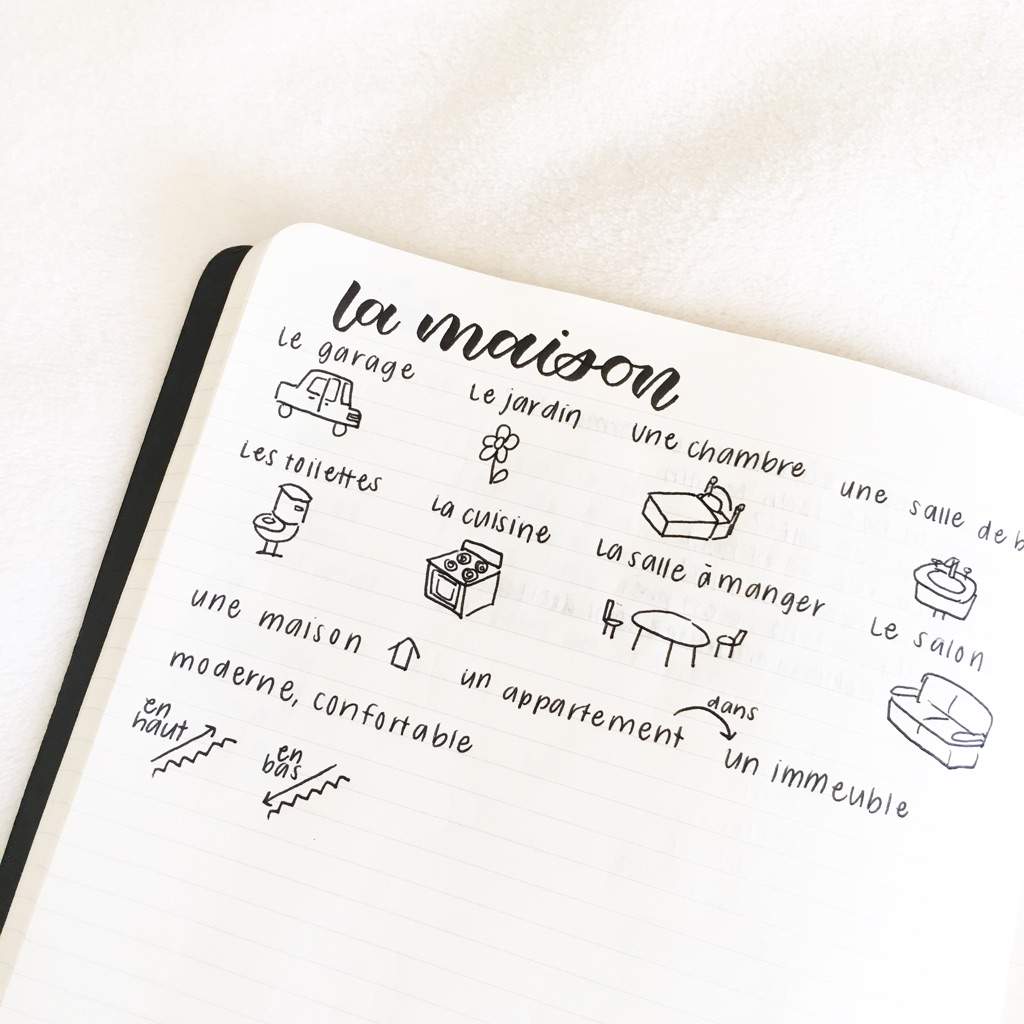 la maison
le garage
le jardin
une chambre
une salle de
les toilettes
la cuisine
la salle à manger
le salon
une maison
un appartement
dans
un immeuble
moderne, confortable
en
haut
en
bas